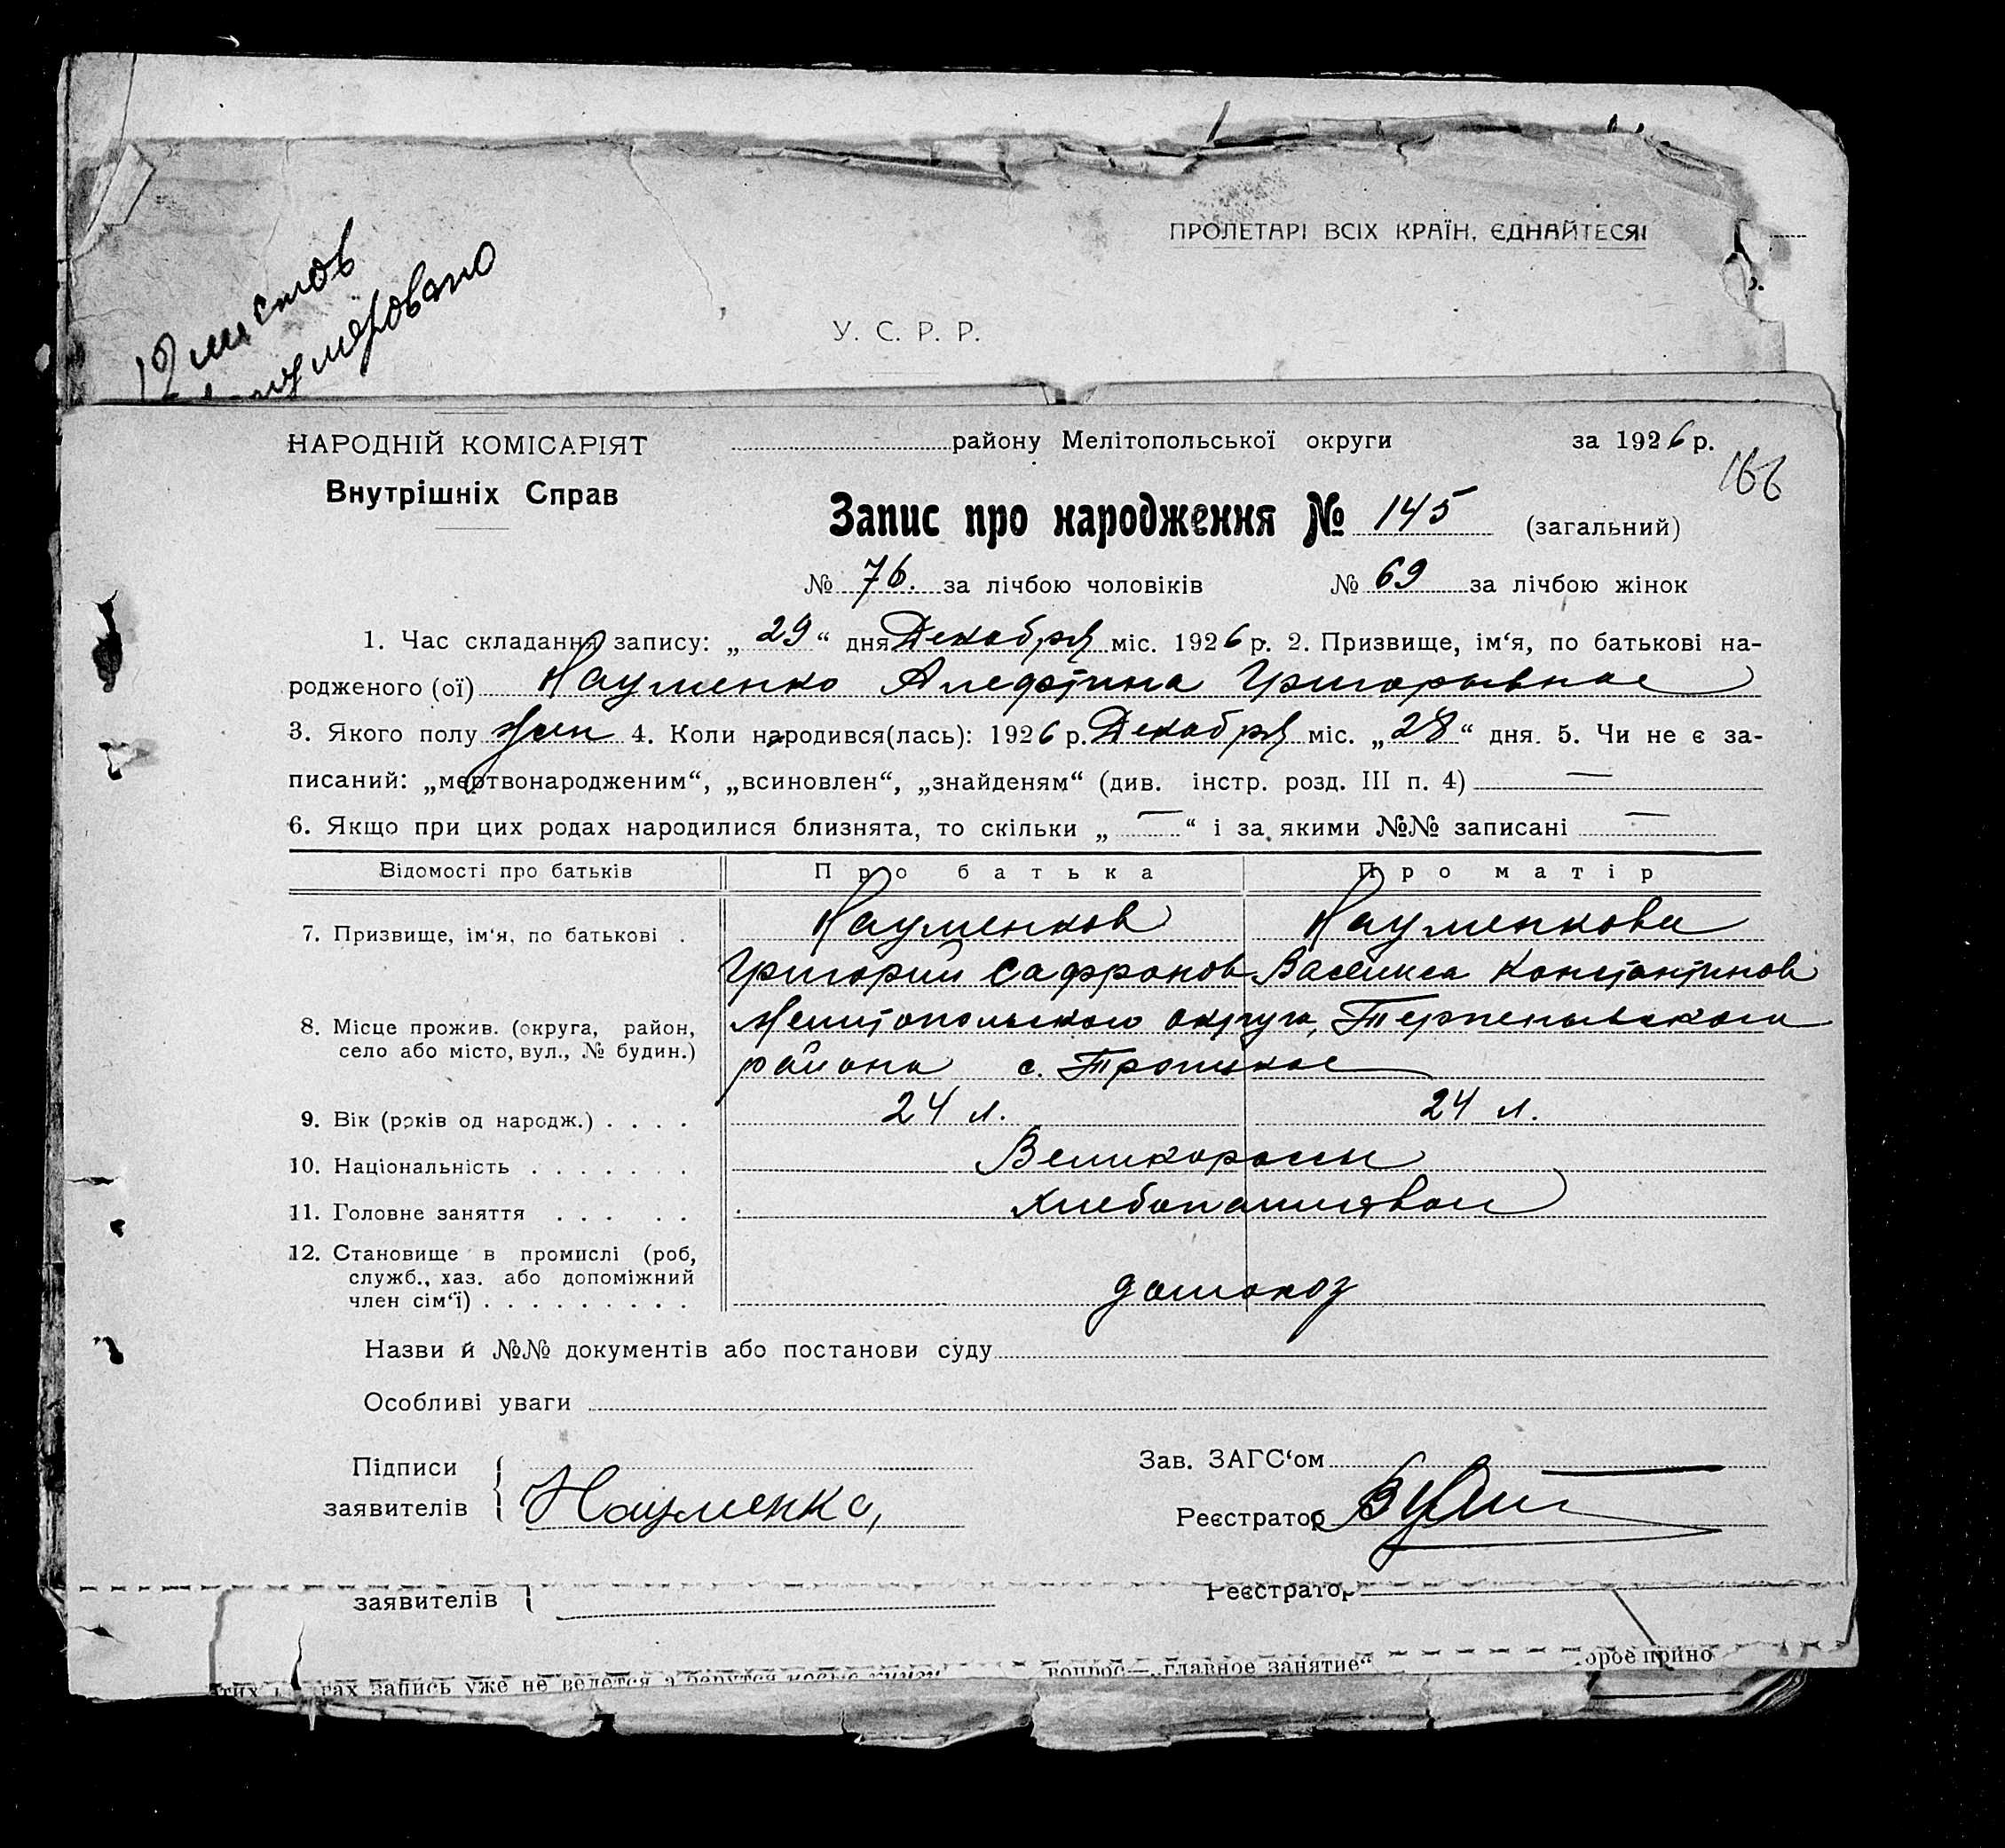 12 листов
пронумеровано
ПРОЛЕТАРІ ВСІХ КРАЇН, ЄДНАЙТЕСЯ!
У. С. Р. Р.
НАРОДНІЙ КОМІСАРІЯТ
Внутрішніх Справ
району Мелітопольської округи за 1926 р.
166
Запис про народження № 145 (загальний)
№ 76. за лічбою чоловіків № 69 за лічбою жінок
1. Час складання запису: „29“ дня Декабря міс. 1926 р. 2. Призвище, ім‘я, по батькові на-
родженого (ої) Науменко Алефтина Григорьевна
3. Якого полу жен 4. Коли народився(лась): 1926 р. Декабря міс. „28“ дня. 5. Чи не є за-
писаний: „мертвонародженим“, „всиновлен“, „знайденям“ (див. інстр. розд. III п. 4) —
6. Якщо при цих родах народилися близнята, то скільки „—“ і за якими №№ записані —
Відомості про батьків Про батька Про матір
7. Призвище, ім‘я, по батькові . Науменков Науменкова
Григорий Сафронов Василиса Константинов
8. Місце прожив. (округа, район, село або місто, вул., № будин.) Мелитопольского округа, Терпеньевского
района с. Троицкое
9. Вік (років од народж.) . . . . 24 л. 24 л.
10. Національність . . . . . . . Великороссы
11. Головне заняття . . . . . Хлебопашество
12. Становище в промислі (роб,
служб., хаз. або допоміжний
член сім‘ї) . . . . . . . . . домохоз
Назви й №№ документів або постанови суду
Особливі уваги
Підписи Зав. ЗАГС‘ом
заявителів Науменко, Реєстратор
заявителів Реєстратор
гах запись уже не ведется а берутся новые книги вопрос—„главное занятие“ орое прино